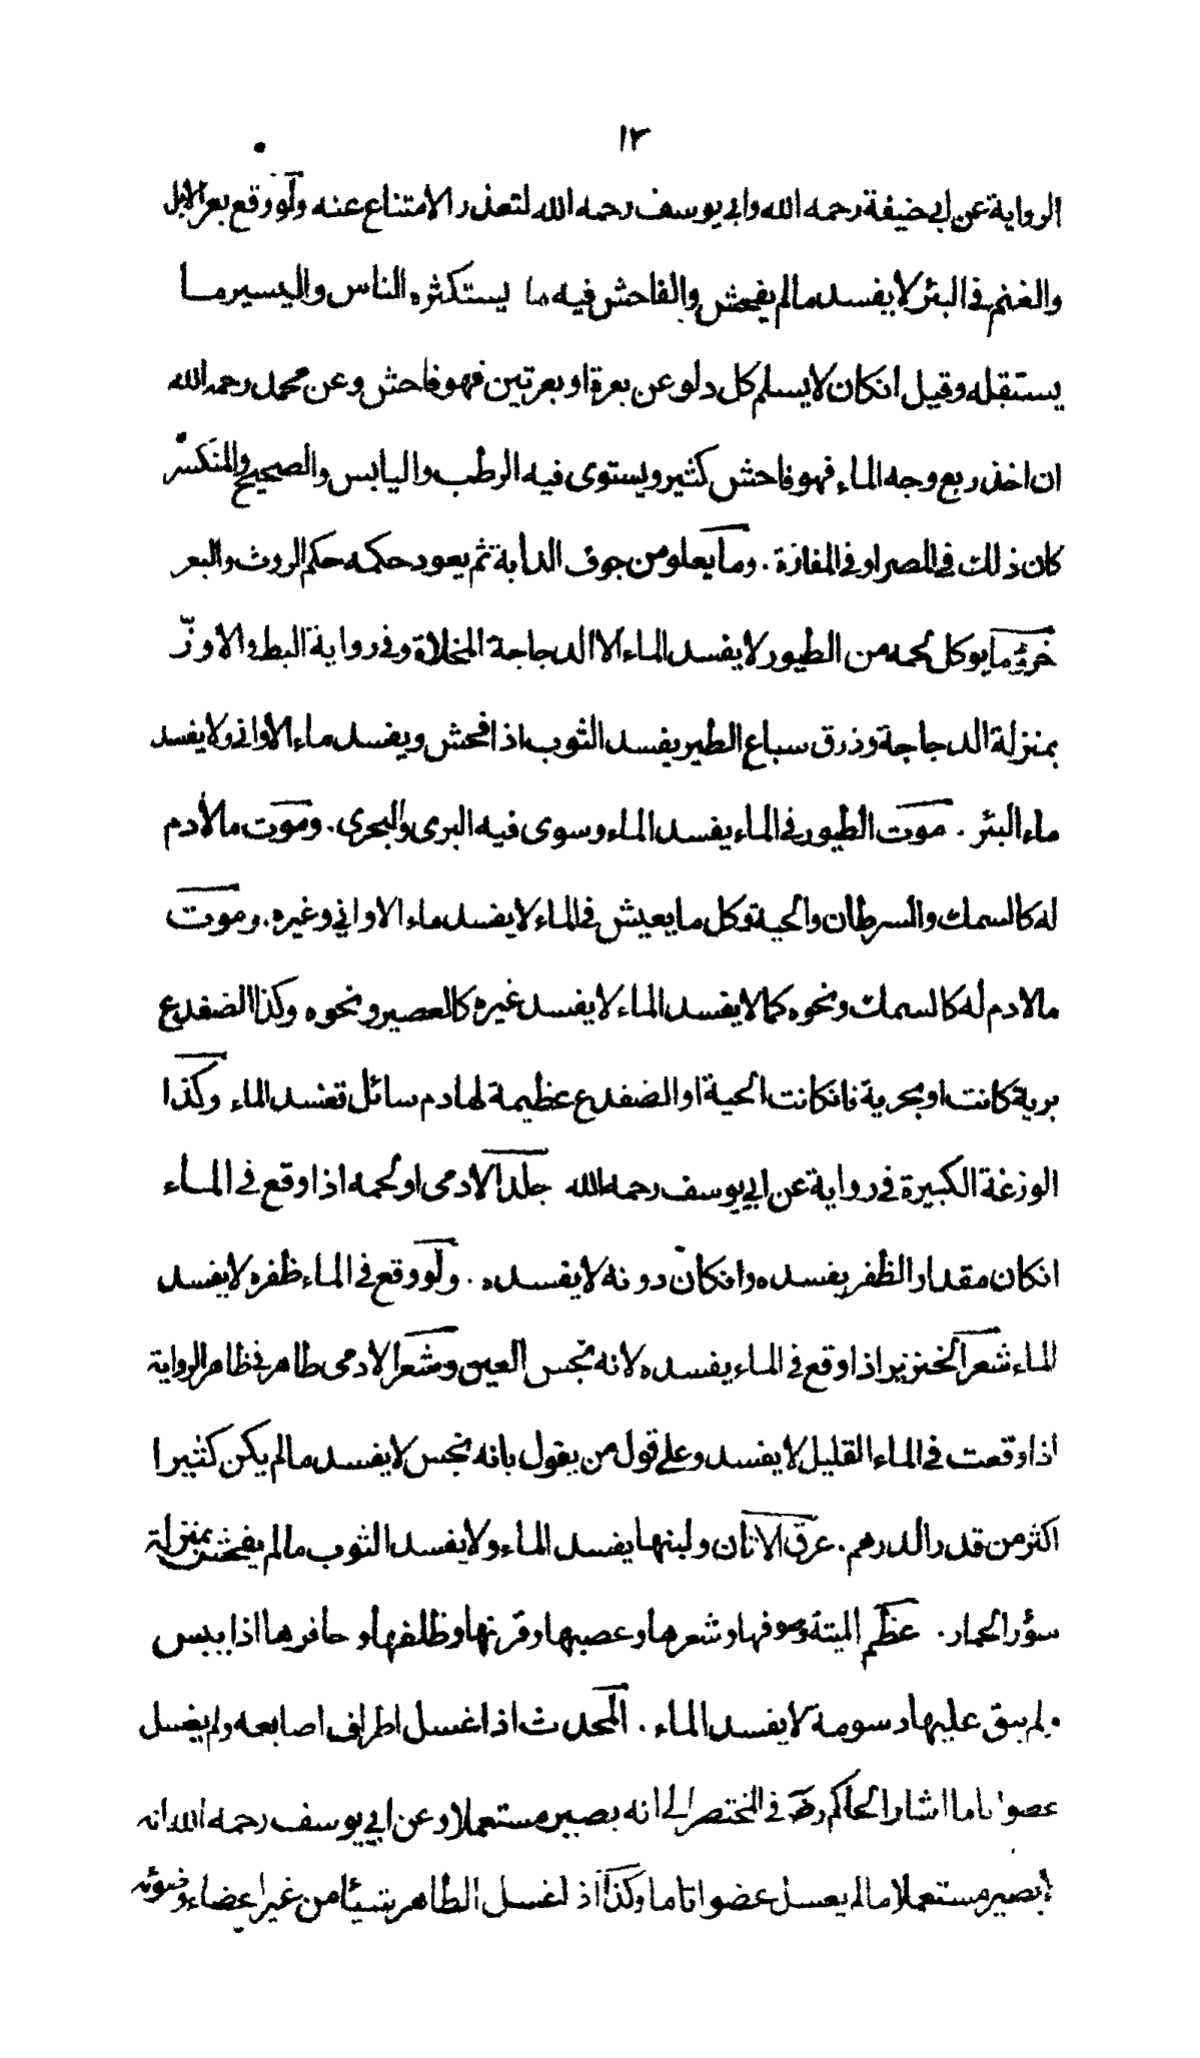 ١٣
الرواية عن ابي حنيفة رحمه الله وابي يوسف رحمه الله لتعذر الامتناع عنه ولو وقع بعر الابل
والغنم في البئر لا يفسد مالم يفحش والفاحش فيه ما يستكثره الناس واليسير ما
يستقله وقيل انكان لا يسلم كل دلو عن بعرة او بعرتين فهو فاحش وعن محمد رحمه الله
ان اخذ ربع وجه الماء فهو فاحش كثير ويستوى فيه الرطب واليابس والصحيح والمنكسر
كان ذلك في المصر او في المفازة . وما يعلو من جوف الدابة ثم يعود حكمه حكم الروث والبعر
خرؤ ما يوكل لحمه من الطيور لا يفسد الماء الا الدجاجة المخلاة وفي رواية البط والاوزّ
بمنزلة الدجاجة وذرق سباع الطير يفسد الثوب اذا فحش ويفسد ماء الاواني ولا يفسد
ماء البئر . موت الطيور في الماء يفسد الماء وسوى فيه البرى والبحرى . وموت مالا دم
له كالسمك والسرطان والحية وكل ما يعيش في الماء لا يفسد ماء الاواني وغيره . وموت
مالا دم له كالسمك ونحوه كما لا يفسد الماء لا يفسد غيره كالعصير ونحوه وكذا الضفدع
برية كانت او بحرية فانكانت الحية او الضفدع عظيمة لها دم سائل تفسد الماء وكذا
الوزغة الكبيرة في رواية عن ابي يوسف رحمه الله جلد الادمى او لحمه اذا وقع في الماء
انكان مقدار الظفر يفسده وانكان دونه لا يفسده . ولو وقع في الماء ظفره لا يفسد
الماء شعر الخنزير اذا وقع في الماء يفسده لانه نجس العين وشعر الادمى طاهر في ظاهر الرواية
اذا وقعت في الماء القليل لا يفسد وعلى قول من يقول بانه نجس لا يفسد مالم يكن كثيرا
اكثر من قدر الدرهم . عرق الاتان ولبنها يفسد الماء ولا يفسد الثوب مالم يفحش بمنزلة
سؤر الحمار . عظم الميتة وصوفها وشعرها وعصبها وقرنها وظلفها وحافرها اذا يبس
ولم يبق عليها دسومة لا يفسد الماء . المحدث اذا غسل اطراف اصابعه ولم يغسل
عضوا تاما اشار الحاكم رح في المختصر الى انه يصير مستعملا وعن ابي يوسف رحمه الله انه
لا يصير مستعملا مالم يغسل عضوا تاما وكذا اذا غسل الطاهر شيئا من غير اعضاء وضوئه